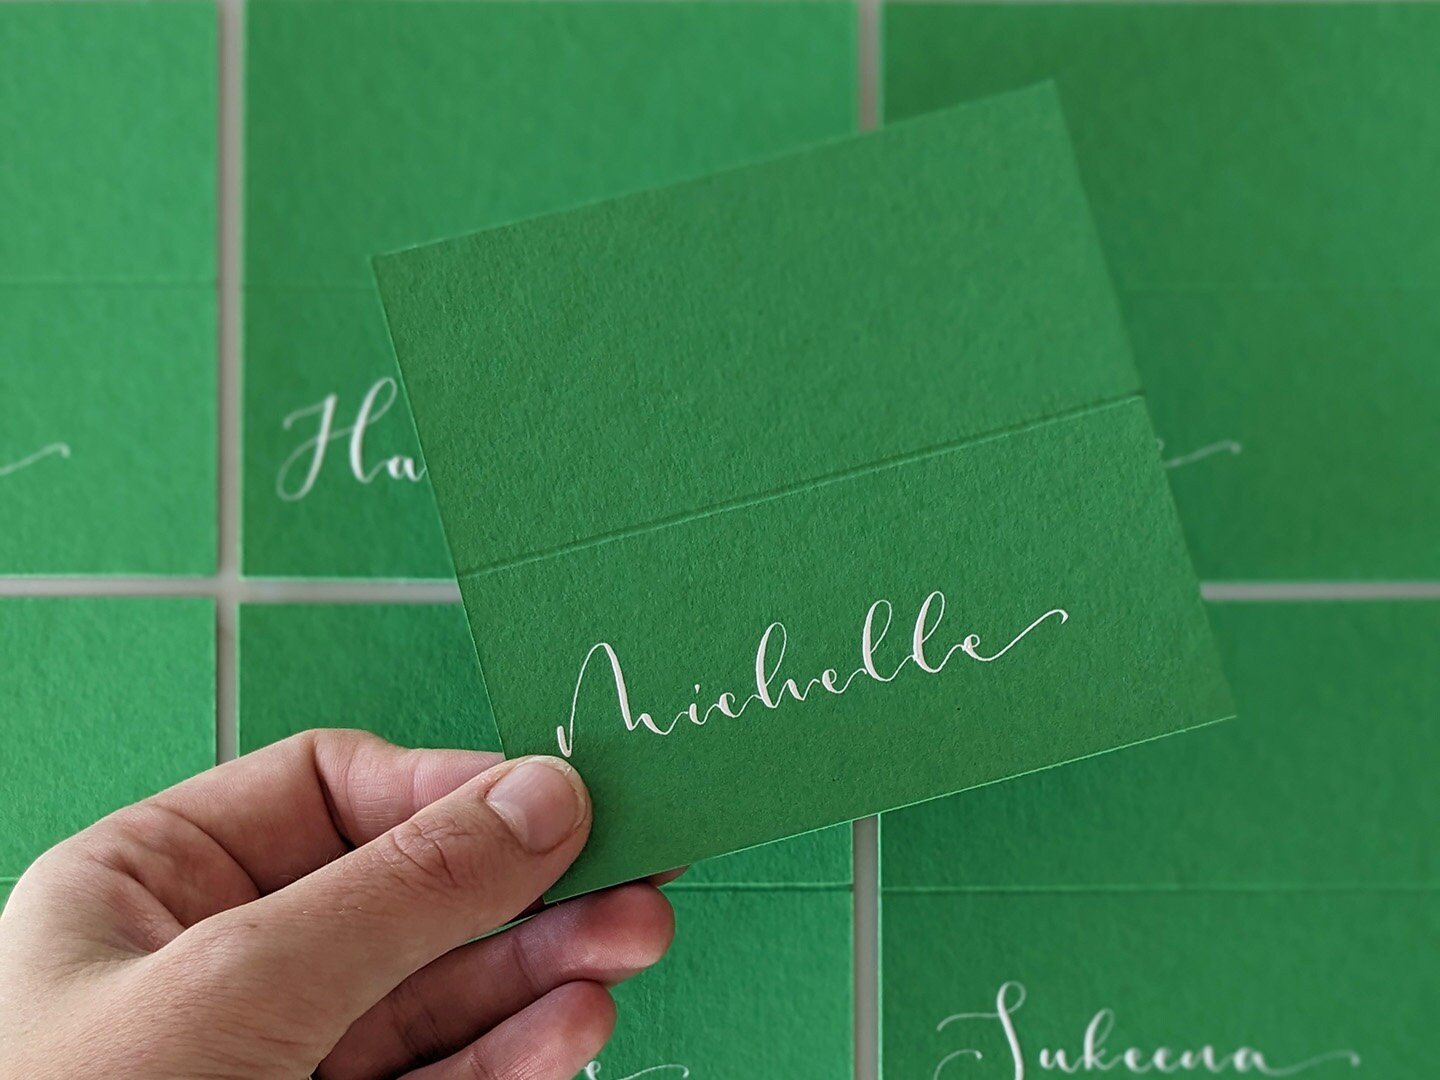 Ha
Michelle
Sukeena